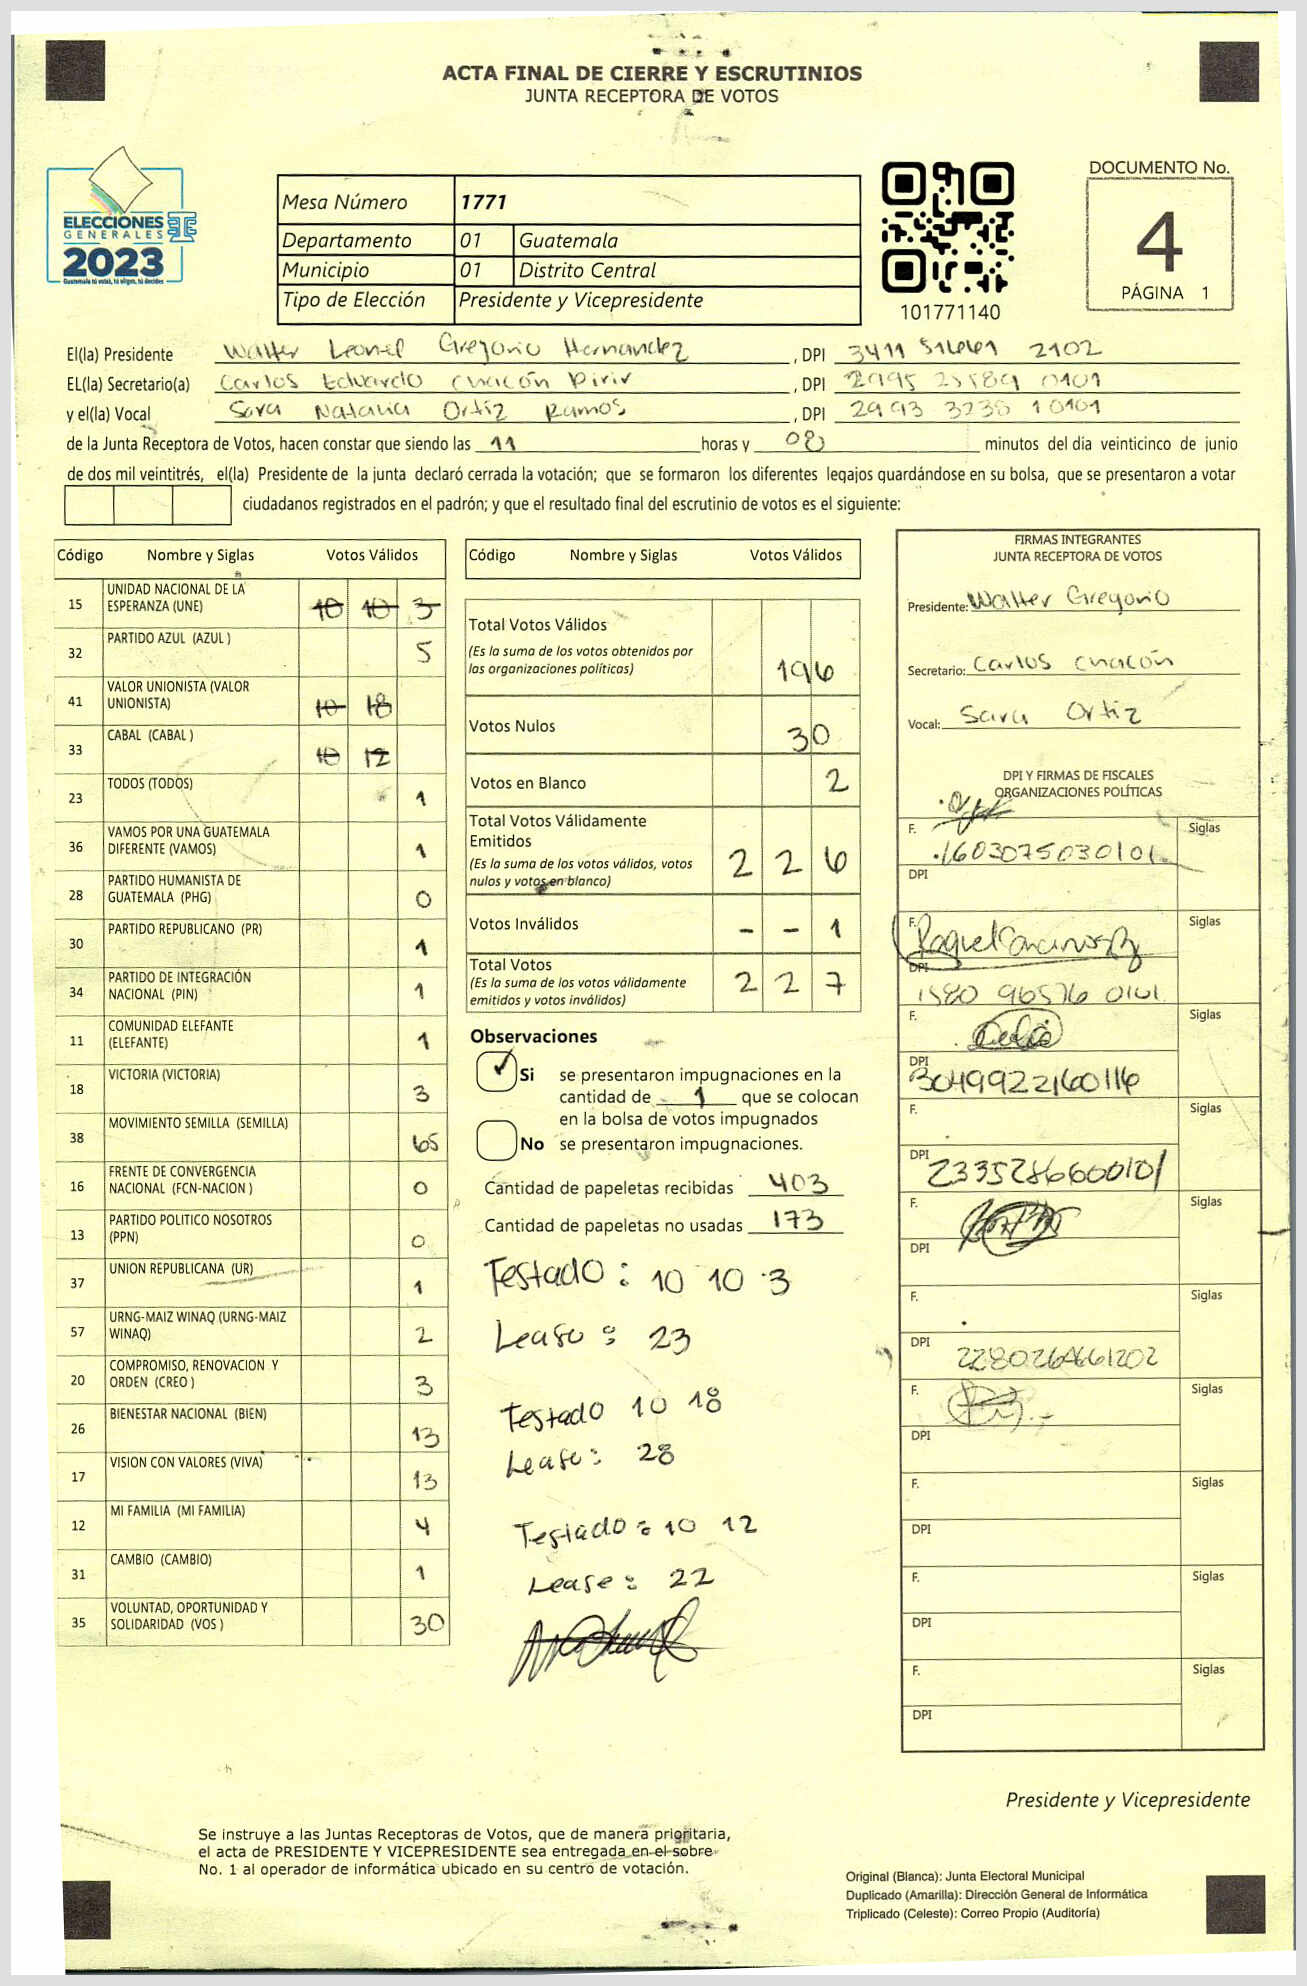 ACTA FINAL DE CIERRE Y ESCRUTINIOS
JUNTA RECEPTORA DE VOTOS
ELECCIONES
GENERALES
2023
Guatemala tú votas, tú eliges, tú decides
Mesa Número 1771
Departamento 01 Guatemala
Municipio 01 Distrito Central
Tipo de Elección Presidente y Vicepresidente
101771140
DOCUMENTO No.
4
PÁGINA 1
El(la) Presidente Walter Leonel Gregorio Hernandez, DPI 3411 2102
EL(la) Secretario(a) Carlos Eduardo Chacón Pirir, DPI 2995 25589 0101
y el(la) Vocal Sara Natalia Ortiz Ramos, DPI 2993 3238 10101
de la Junta Receptora de Votos, hacen constar que siendo las 11 horas y 08 minutos del día veinticinco de junio
de dos mil veintitrés, el(la) Presidente de la junta declaró cerrada la votación; que se formaron los diferentes legajos guardándose en su bolsa, que se presentaron a votar
ciudadanos registrados en el padrón; y que el resultado final del escrutinio de votos es el siguiente:
Código Nombre y Siglas Votos Válidos
15 UNIDAD NACIONAL DE LA ESPERANZA (UNE) 10 10 3
32 PARTIDO AZUL (AZUL ) 5
41 VALOR UNIONISTA (VALOR UNIONISTA) 10 18
33 CABAL (CABAL ) 10 12
23 TODOS (TODOS) 1
36 VAMOS POR UNA GUATEMALA DIFERENTE (VAMOS) 1
28 PARTIDO HUMANISTA DE GUATEMALA (PHG) 0
30 PARTIDO REPUBLICANO (PR) 1
34 PARTIDO DE INTEGRACIÓN NACIONAL (PIN) 1
11 COMUNIDAD ELEFANTE (ELEFANTE) 1
18 VICTORIA (VICTORIA) 3
38 MOVIMIENTO SEMILLA (SEMILLA) 65
16 FRENTE DE CONVERGENCIA NACIONAL (FCN-NACION ) 0
13 PARTIDO POLITICO NOSOTROS (PPN) 0
37 UNION REPUBLICANA (UR) 1
57 URNG-MAIZ WINAQ (URNG-MAIZ WINAQ) 2
20 COMPROMISO, RENOVACION Y ORDEN (CREO ) 3
26 BIENESTAR NACIONAL (BIEN) 13
17 VISION CON VALORES (VIVA) 13
12 MI FAMILIA (MI FAMILIA) 4
31 CAMBIO (CAMBIO) 1
35 VOLUNTAD, OPORTUNIDAD Y SOLIDARIDAD (VOS ) 30
Código Nombre y Siglas Votos Válidos
Total Votos Válidos
(Es la suma de los votos obtenidos por
las organizaciones políticas) 196
Votos Nulos 30
Votos en Blanco 2
Total Votos Válidamente
Emitidos
(Es la suma de los votos válidos, votos
nulos y votos en blanco) 2 2 6
Votos Inválidos - - 1
Total Votos
(Es la suma de los votos válidamente
emitidos y votos inválidos) 2 2 7
Observaciones
✓ Si se presentaron impugnaciones en la
cantidad de 1 que se colocan
en la bolsa de votos impugnados
No se presentaron impugnaciones.
Cantidad de papeletas recibidas 403
Cantidad de papeletas no usadas 173
Testado: 10 10 3
Lease: 23
Testado 10 18
Lease: 28
Testado: 10 12
Lease: 22
FIRMAS INTEGRANTES
JUNTA RECEPTORA DE VOTOS
Presidente: Walter Gregorio
Secretario: Carlos Chacón
Vocal: Sara Ortiz
DPI Y FIRMAS DE FISCALES
ORGANIZACIONES POLÍTICAS
F. Siglas
1603075030101
DPI
F. Siglas
DPI
1580 96576 0101
F. Siglas
DPI
3049922160116
F. Siglas
DPI
2335286600101
F. Siglas
DPI
F. Siglas
DPI
2280264661202
F. Siglas
DPI
F. Siglas
DPI
F. Siglas
DPI
F. Siglas
DPI
Presidente y Vicepresidente
Se instruye a las Juntas Receptoras de Votos, que de manera prioritaria,
el acta de PRESIDENTE Y VICEPRESIDENTE sea entregada en el sobre
No. 1 al operador de informática ubicado en su centro de votación.
Original (Blanca): Junta Electoral Municipal
Duplicado (Amarilla): Dirección General de Informática
Triplicado (Celeste): Correo Propio (Auditoría)